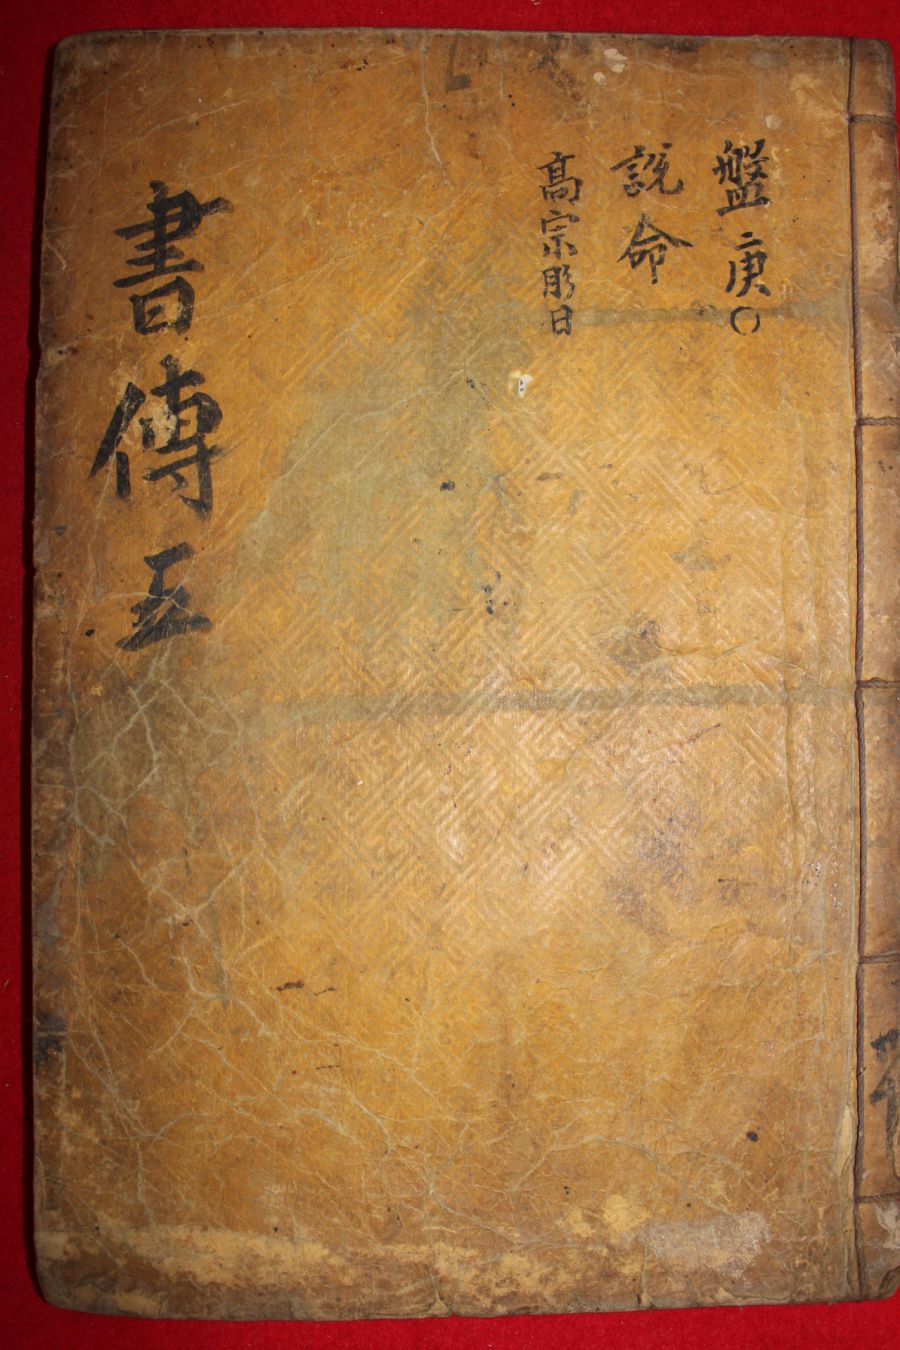 盤庚〇
說命
高宗肜日
書傳五